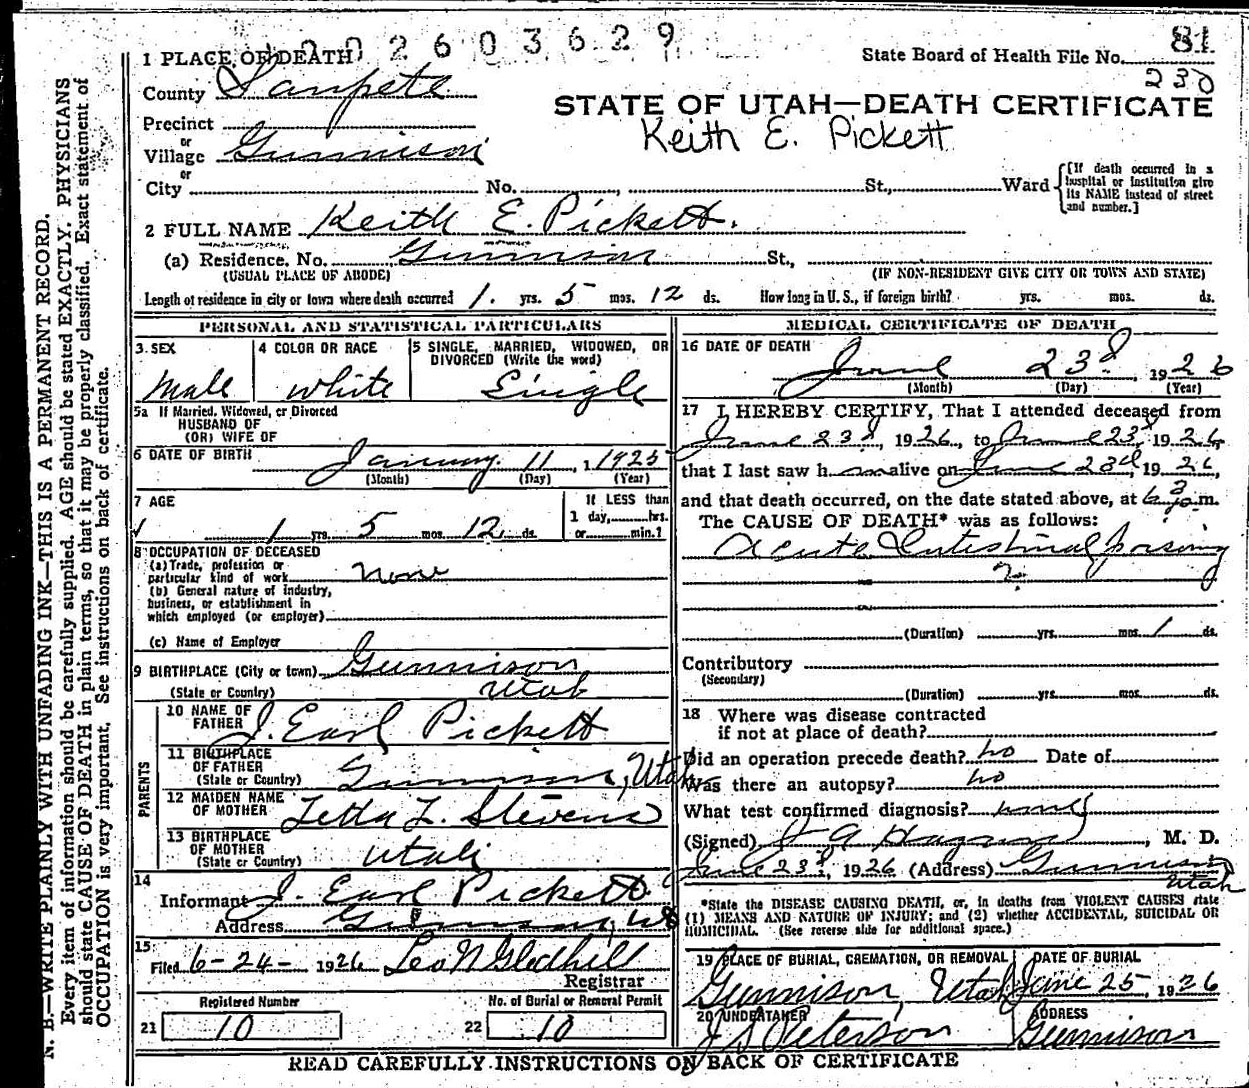 2602603629
81
1 PLACE OF DEATH
State Board of Health File No.
230
County Sanpete
STATE OF UTAH—DEATH CERTIFICATE
Precinct
Keith E. Pickett
or
Village Gunnison
or
City No. , St., Ward
[If death occurred in a hospital or institution give its NAME instead of street and number.]
2 FULL NAME Keith E. Pickett.
(a) Residence, No. Gunnison St.,
(USUAL PLACE OF ABODE) (IF NON-RESIDENT GIVE CITY OR TOWN AND STATE)
Length of residence in city or town where death occurred 1 yrs. 5 mos. 12 ds. How long in U. S., if foreign birth? yrs. mos. ds.
PERSONAL AND STATISTICAL PARTICULARS
3 SEX
Male
4 COLOR OR RACE
White
5 SINGLE, MARRIED, WIDOWED, OR DIVORCED (Write the word)
Single
5a If Married, Widowed, or Divorced
HUSBAND OF
(OR) WIFE OF
6 DATE OF BIRTH January 11, 1 1925
(Month) (Day) (Year)
7 AGE
1 yrs. 5 mos. 12 ds.
If LESS than
1 day, hrs.
or min.?
8 OCCUPATION OF DECEASED
(a) Trade, profession or
particular kind of work None
(b) General nature of industry,
business, or establishment in
which employed (or employer)
(c) Name of Employer
9 BIRTHPLACE (City or town) Gunnison
(State or Country) Utah
PARENTS
10 NAME OF FATHER J. Earl Pickett
11 BIRTHPLACE OF FATHER
(State or Country) Gunnison, Utah
12 MAIDEN NAME OF MOTHER Letta L. Stevens
13 BIRTHPLACE OF MOTHER
(State or Country) Utah
14
Informant J. Earl Pickett
Address Gunnison, Ut
15
Filed 6-24- 1926 Leo N Gledhill
Registrar
Registered Number
21 10
No. of Burial or Removal Permit
22 10
MEDICAL CERTIFICATE OF DEATH
16 DATE OF DEATH
June 23d, 1926
(Month) (Day) (Year)
17 I HEREBY CERTIFY, That I attended deceased from
June 23d, 1926, to June 23d, 1926,
that I last saw him alive on June 23d, 1926,
and that death occurred, on the date stated above, at 6 30 p.m.
The CAUSE OF DEATH* was as follows:
Acute Intestinal poisoning
?
(Duration) yrs. mos. 1 ds.
Contributory
(Secondary)
(Duration) yrs. mos. ds.
18 Where was disease contracted
if not at place of death?
Did an operation precede death? no Date of
Was there an autopsy? no
What test confirmed diagnosis?
(Signed) , M. D.
June 23d, 1926 (Address) Gunnison
Utah
*State the DISEASE CAUSING DEATH, or, in deaths from VIOLENT CAUSES state
(1) MEANS AND NATURE OF INJURY; and (2) whether ACCIDENTAL, SUICIDAL OR
HOMICIDAL. (See reverse side for additional space.)
19 PLACE OF BURIAL, CREMATION, OR REMOVAL
Gunnison, Utah
DATE OF BURIAL
June 25, 1926
20 UNDERTAKER
J S Peterson
ADDRESS
Gunnison
READ CAREFULLY INSTRUCTIONS ON BACK OF CERTIFICATE
N. B.—WRITE PLAINLY WITH UNFADING INK—THIS IS A PERMANENT RECORD.
Every item of information should be carefully supplied. AGE should be stated EXACTLY. PHYSICIANS
should state CAUSE OF DEATH in plain terms, so that it may be properly classified. Exact statement of
OCCUPATION is very important. See instructions on back of certificate.